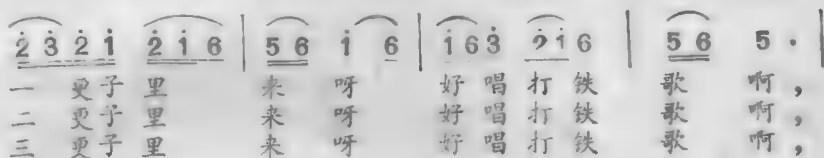 2̇ 3̇ 2̇ 1̇ 2̇ 1̇ 6 | 5 6 1̇ 6 | 1̇ 6 3̇ 2̇ 1̇ 6 | 5 6 5 · |
一 更子里 来 呀 好 唱 打 铁 歌 啊，
二 更子里 来 呀 好 唱 打 铁 歌 啊，
三 更子里 来 呀 好 唱 打 铁 歌 啊，